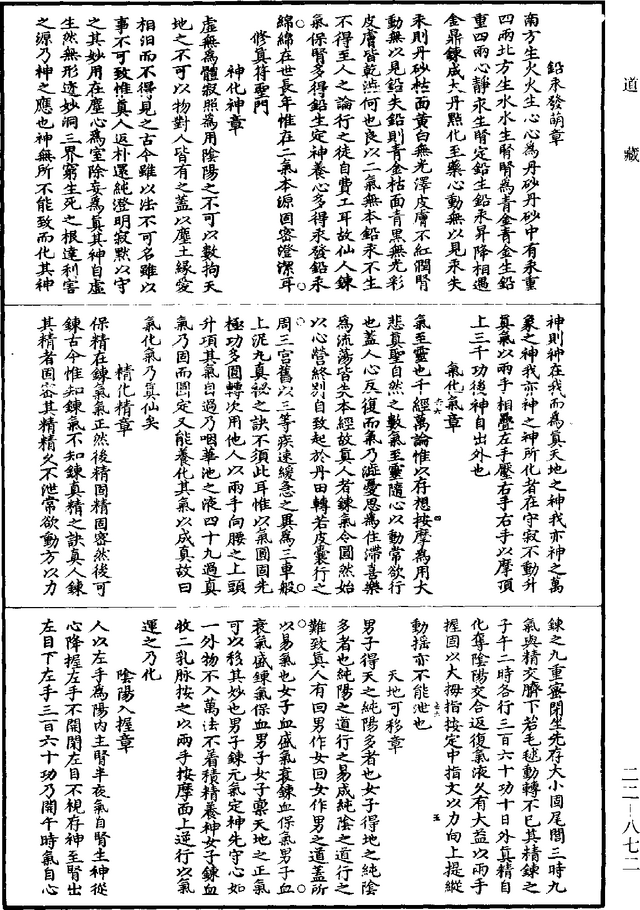 道藏
鉛汞發萌章
南方生火火生心心為丹砂丹砂中有汞重
四兩北方生水水生腎腎為青金青金生鉛
重四兩心靜汞生腎定鉛生鉛汞昇降相遇
金鼎鍊成大丹點化至藥心動無以見汞失
汞則丹砂枯面黃白無光澤皮膚不紅潤腎
動無以見鉛失鉛則青金枯面青黑無光彩
皮膚皆乾澁何也良以二氣無本鉛汞不生
不得至人之論行之徒自費工耳故仙人鍊
氣保腎多得鉛生定神養心多得汞發鉛汞
綿綿在世長年惟在二氣本源固密澄潔耳
修真符聖門
神化神章
虛無為體寂照為用陰陽之不可以數拘天
地之不可以物對人皆有之蓋以塵土緣愛
相汨而不得見之古今雖以法不可名雖以
事不可致惟真人返朴還純澄明寂默以守
之其妙用在塵心為室除妄為真其神自虛
生然無形迹妙洞三界窮生死之根達利害
之源乃神之應也神無所不能致而化其神
神則神在我而為真天地之神我亦神之萬
象之神我亦神之神所化者在守寂不動升
真氣以兩手相疊左手壓右手右手以摩頂
上三千功後神自出外也
氣化氣章
氣至靈也千經萬論惟以存想按摩為用大
悲真聖自然之數氣至靈隨心以動常欲行
也蓋人心反復而氣乃澁憂思為住滯喜樂
為流蕩皆失本經故真人者鍊氣令圓然始
以心營終別自致起於丹田轉若皮囊行之
周三宮舊以三等疾速緩急之異為三車般
上泥九真祕之訣不須此耳惟以氣圓固先
極功多圓轉次用他人以兩手向腰之上頭
升項其氣自過乃咽華池之液四十九過真
氣乃固而圓定又能養化其氣以成真故曰
氣化氣乃真仙矣
精化精章
保精在鍊氣氣正然後精固精固密然後可
鍊古今惟知鍊氣不知鍊真精之訣真人鍊
其精者固密其精精久不泄常欲動方以力
鍊之九重密閉坐先存大小固尾閭三時九
氣與精交臍下若毛毬動轉不已其精鍊之
子午二時各行三百六十功十日外真精自
化奪陰陽交合返復氣液久有大益以兩手
握固以大拇指按定中指文以力向上提縱
動搖亦不能泄也
天地可移章
男子得天之純陽多者也女子得地之純陰
多者也純陽之道行之易成純陰之道行之
難致真人有回男作女回女作男之道蓋所
以易氣也女子血盛氣衰鍊血保氣男子血
衰氣盛鍊氣保血男子女子稟天地之正氣
可以移其妙也男子鍊元氣定神先守心如
一外物不入萬法不着積精養神女子鍊血
收二乳脉按之以兩手按摩面上逆行以氣
運之乃化
陰陽入握章
人以左手為陽內主腎半夜氣自腎生神從
心降握左手不開閉左目不視存神至腎出
左目下左手三百六十功乃開午時氣自心
二二-八七二